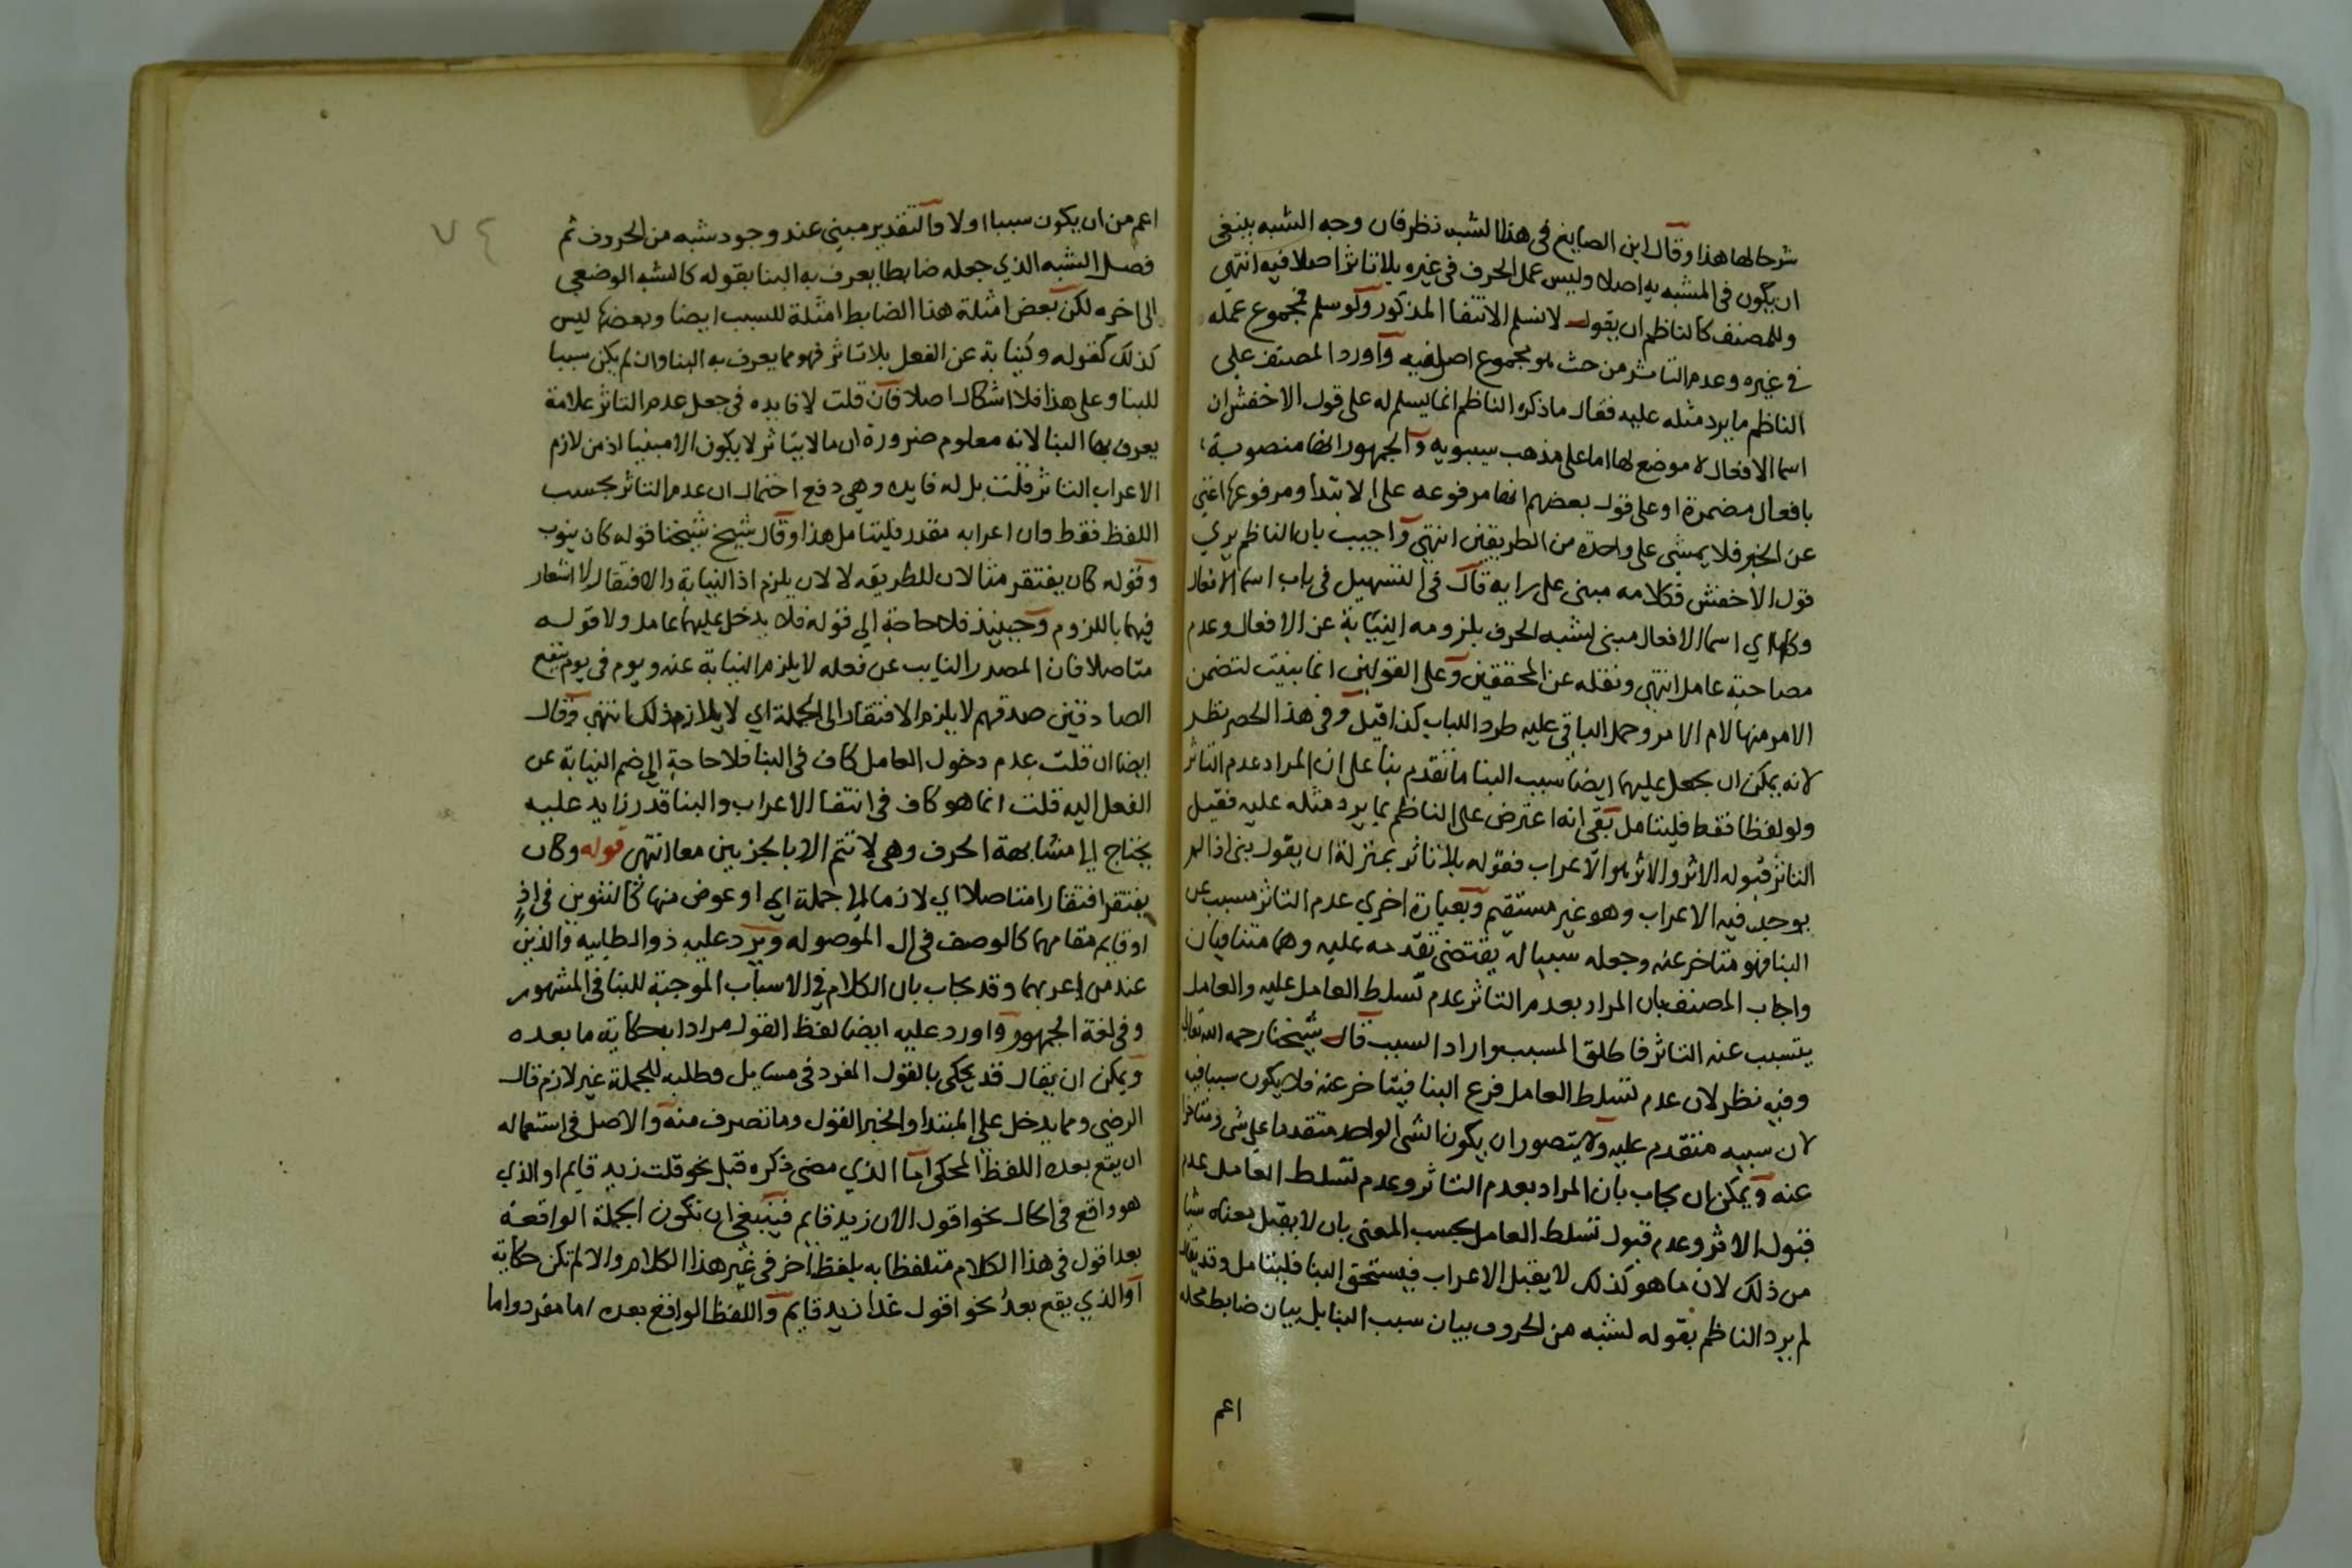 شرحا لها هذا وقال ابن الصايغ في هذا الشبه نظر فان وجه الشبه ينبغي
ان يكون في المشبه به اصلا وليس عمل الحرف في غيره بلا تاثر اصلا فيه انتهى
وللمصنف كالناظم ان يقول لا نسلم الانتفا المذكور ولو سلم فمجموع عمله
في غيره وعدم التاثر من حيث هو مجموع اصل فيه واورد المصنف على
الناظم ما يرد مثله عليه فقال ما ذكره الناظم انما يسلم له على قول الاخفش ان
اسما الافعال لا موضع لها اما على مذهب سيبويه والجمهور انها منصوبة
بافعال مضمرة او على قول بعضهم انها مرفوعه على الابتدا ومرفوعها اغنى
عن الخبر فلا يمشى على واحدة من الطريقين انتهى واجيب بان الناظم يري
قول الاخفش فكلامه مبنى على رايه قال في التسهيل في باب اسما الافعال
وكلها اي اسما الافعال مبنى لشبه الحرف بلزومه النيابة عن الافعال وعدم
مصاحبة عامل انتهى ونقله عن المحققين وعلى القولين انما بنيت لتضمن
الامر منها لام الامر وحمل الباقي عليه طردا للباب كذا قيل وفي هذا الحصر نظر
لانه يمكن ان يجعل عليهما ايضا سبب البنا ما تقدم بنا على ان المراد عدم التاثر
ولو لفظا فقط فليتامل بقي انه اعترض على الناظم بما يرد مثله عليه فقيل
التاثر قبوله الاثر والاثر هو الاعراب فقوله بلا تاثر بمنزلة ان يقول بنى اذا لم
يوجد فيه الاعراب وهو غير مستقيم وبعبارة اخري عدم التاثر مسبب عن
البنا فهو متاخر عنه وجعله سببا له يقتضى تقدمه عليه وهما متنافيان
واجاب المصنف بان المراد بعدم التاثر عدم تسلط العامل عليه والعامل
يتسبب عنه التاثر فاطلق المسبب واراد السبب قال شيخنا رحمه الله تعالى
وفيه نظر لان عدم تسلط العامل فرع البنا فيتاخر عنه فلا يكون سببا فيه
لان سببه متقدم عليه ولا يتصور ان يكون الشي الواحد متقدما على شي ومتاخرا
عنه ويمكن ان يجاب بان المراد بعدم التاثر وعدم تسلط العامل عدم
قبول الاثر وعدم قبول تسلط العامل بحسب المعنى بان لا يقبل معناه شيا
من ذلك لان ما هو كذلك لا يقبل الاعراب فيستحق البنا فليتامل وقد يقال
لم يرد الناظم بقوله لشبه من الحروف بيان سبب البنا بل بيان ضابط محله
اعم
٧٤
اعم من ان يكون سببا او لا والتقدير مبني عند وجود شبه من الحروف ثم
فصل الشبه الذي جعله ضابطا يعرف به البنا بقوله كالشبه الوضعي
الى اخره لكن بعض امثلة هذا الضابط امثلة للسبب ايضا وبعضها ليس
كذلك كقوله وكنيابة عن الفعل بلا تاثر فهو مما يعرف به البنا وان لم يكن سببا
للبنا وعلى هذا فلا اشكال اصلا فان قلت لا فايده في جعل عدم التاثر علامة
يعرف بها البنا لانه معلوم ضرورة ان ما لا يتاثر لا يكون الا مبنيا اذ من لازم
الاعراب التاثر قلت بل له فايده وهي دفع احتمال ان عدم التاثر بحسب
اللفظ فقط وان اعرابه مقدر فليتامل هذا وقال شيخ شيخنا قوله كان ينوب
وقوله كان يفتقر مثالان للطريقه لا لان يلزم اذ النيابة والافتقار لا اشعار
فيهما باللزوم وحينيذ فلا حاجة الي قوله فلا يدخل عليهما عامل ولا قوله
متاصلا فان المصدر النايب عن فعله لا يلزم النيابة عنه ويوم في يوم ينفع
الصادقين صدقهم لا يلزم الافتقار الى الجملة اي لا يلازم ذلك انتهى وقال
ايضا ان قلت عدم دخول العامل كاف في البنا فلا حاجة الي ضم النيابة عن
الفعل اليه قلت انما هو كاف في انتفا الاعراب والبنا قدر زايد عليه
يحتاج الى مشابهة الحرف وهي لا تتم الا بالجزيين معا انتهى قوله وكان
يفتقر افتقارا متاصلا اي لازما الى جملة اي او عوض منها كالتنوين في اذٍ
او قايم مقامهما كالوصف في ال الموصوله ويرد عليه ذو الطاييه والذين
عند من اعربهما وقد يجاب بان الكلام في الاسباب الموجبة للبنا في المشهور
وفي لغة الجمهور واورد عليه ايضا لفظ القول مرادا به حكاية ما بعده
ويمكن ان يقال قد يحكي بالقول المفرد في مسايل فطلبه للجملة غير لازم قال
الرضي ومما يدخل على المبتدا والخبر القول وما تصرف منه والاصل في استعماله
ان يقع بعده اللفظ المحكي اما الذي مضى ذكره قبل نحو قلت زيد قايم او الذي
هو واقع في الحال نحو اقول الان زيد قايم فينبغي ان تكون الجملة الواقعة
بعد اقول في هذا الكلام متلفظا به بلفظ اخر في غير هذا الكلام والا لم تكن حكاية
او الذي يقع بعدُ نحو اقول غدا زيد قايم واللفظ الواقع بعده اما مفرد واما